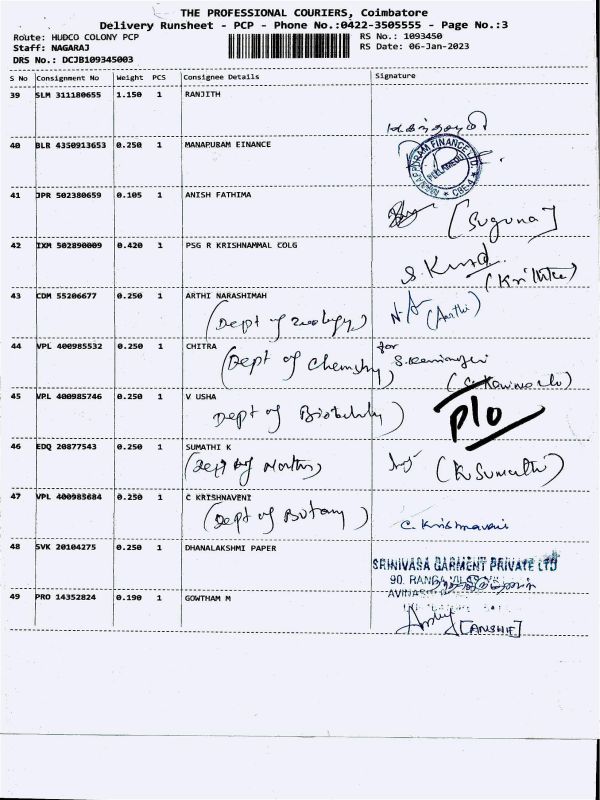 THE PROFESSIONAL COURIERS, Coimbatore
Delivery Runsheet - PCP - Phone No.:0422-3505555 - Page No.:3
Route: HUDCO COLONY PCP
RS No.: 1093450
Staff: NAGARAJ
RS Date: 06-Jan-2023
DRS No.: DCJB109345003
S No Consignment No Weight PCS Consignee Details Signature
39 SLM 311180655 1.150 1 RANJITH
40 BLR 4350913653 0.250 1 MANAPURAM EINANCE
MANAPPURAM FINANCE LTD
PEELAMEDU
CBE-4
41 JPR 502380659 0.105 1 ANISH FATHIMA
[Suguna]
42 IXM 502890009 0.420 1 PSG R KRISHNAMMAL COLG
(Krithika)
43 CDM 55206677 0.250 1 ARTHI NARASHIMAH
(Dept of Zoology)
N.A (Arthi)
44 VPL 400985532 0.250 1 CHITRA
for
(Dept of Chemistry)
45 VPL 400985746 0.250 1 V USHA
Dept of
P/O
46 EDQ 20877543 0.250 1 SUMATHI K
(Dept of Maths)
(K Sumathi)
47 VPL 400983684 0.250 1 C KRISHNAVENI
(Dept of Botany)
C. Krishnaveni
48 SVK 20104275 0.250 1 DHANALAKSHMI PAPER
SRINIVASA GARMENT PRIVATE LTD
90.
49 PRO 14352824 0.190 1 GOWTHAM M
[ANSHIE]